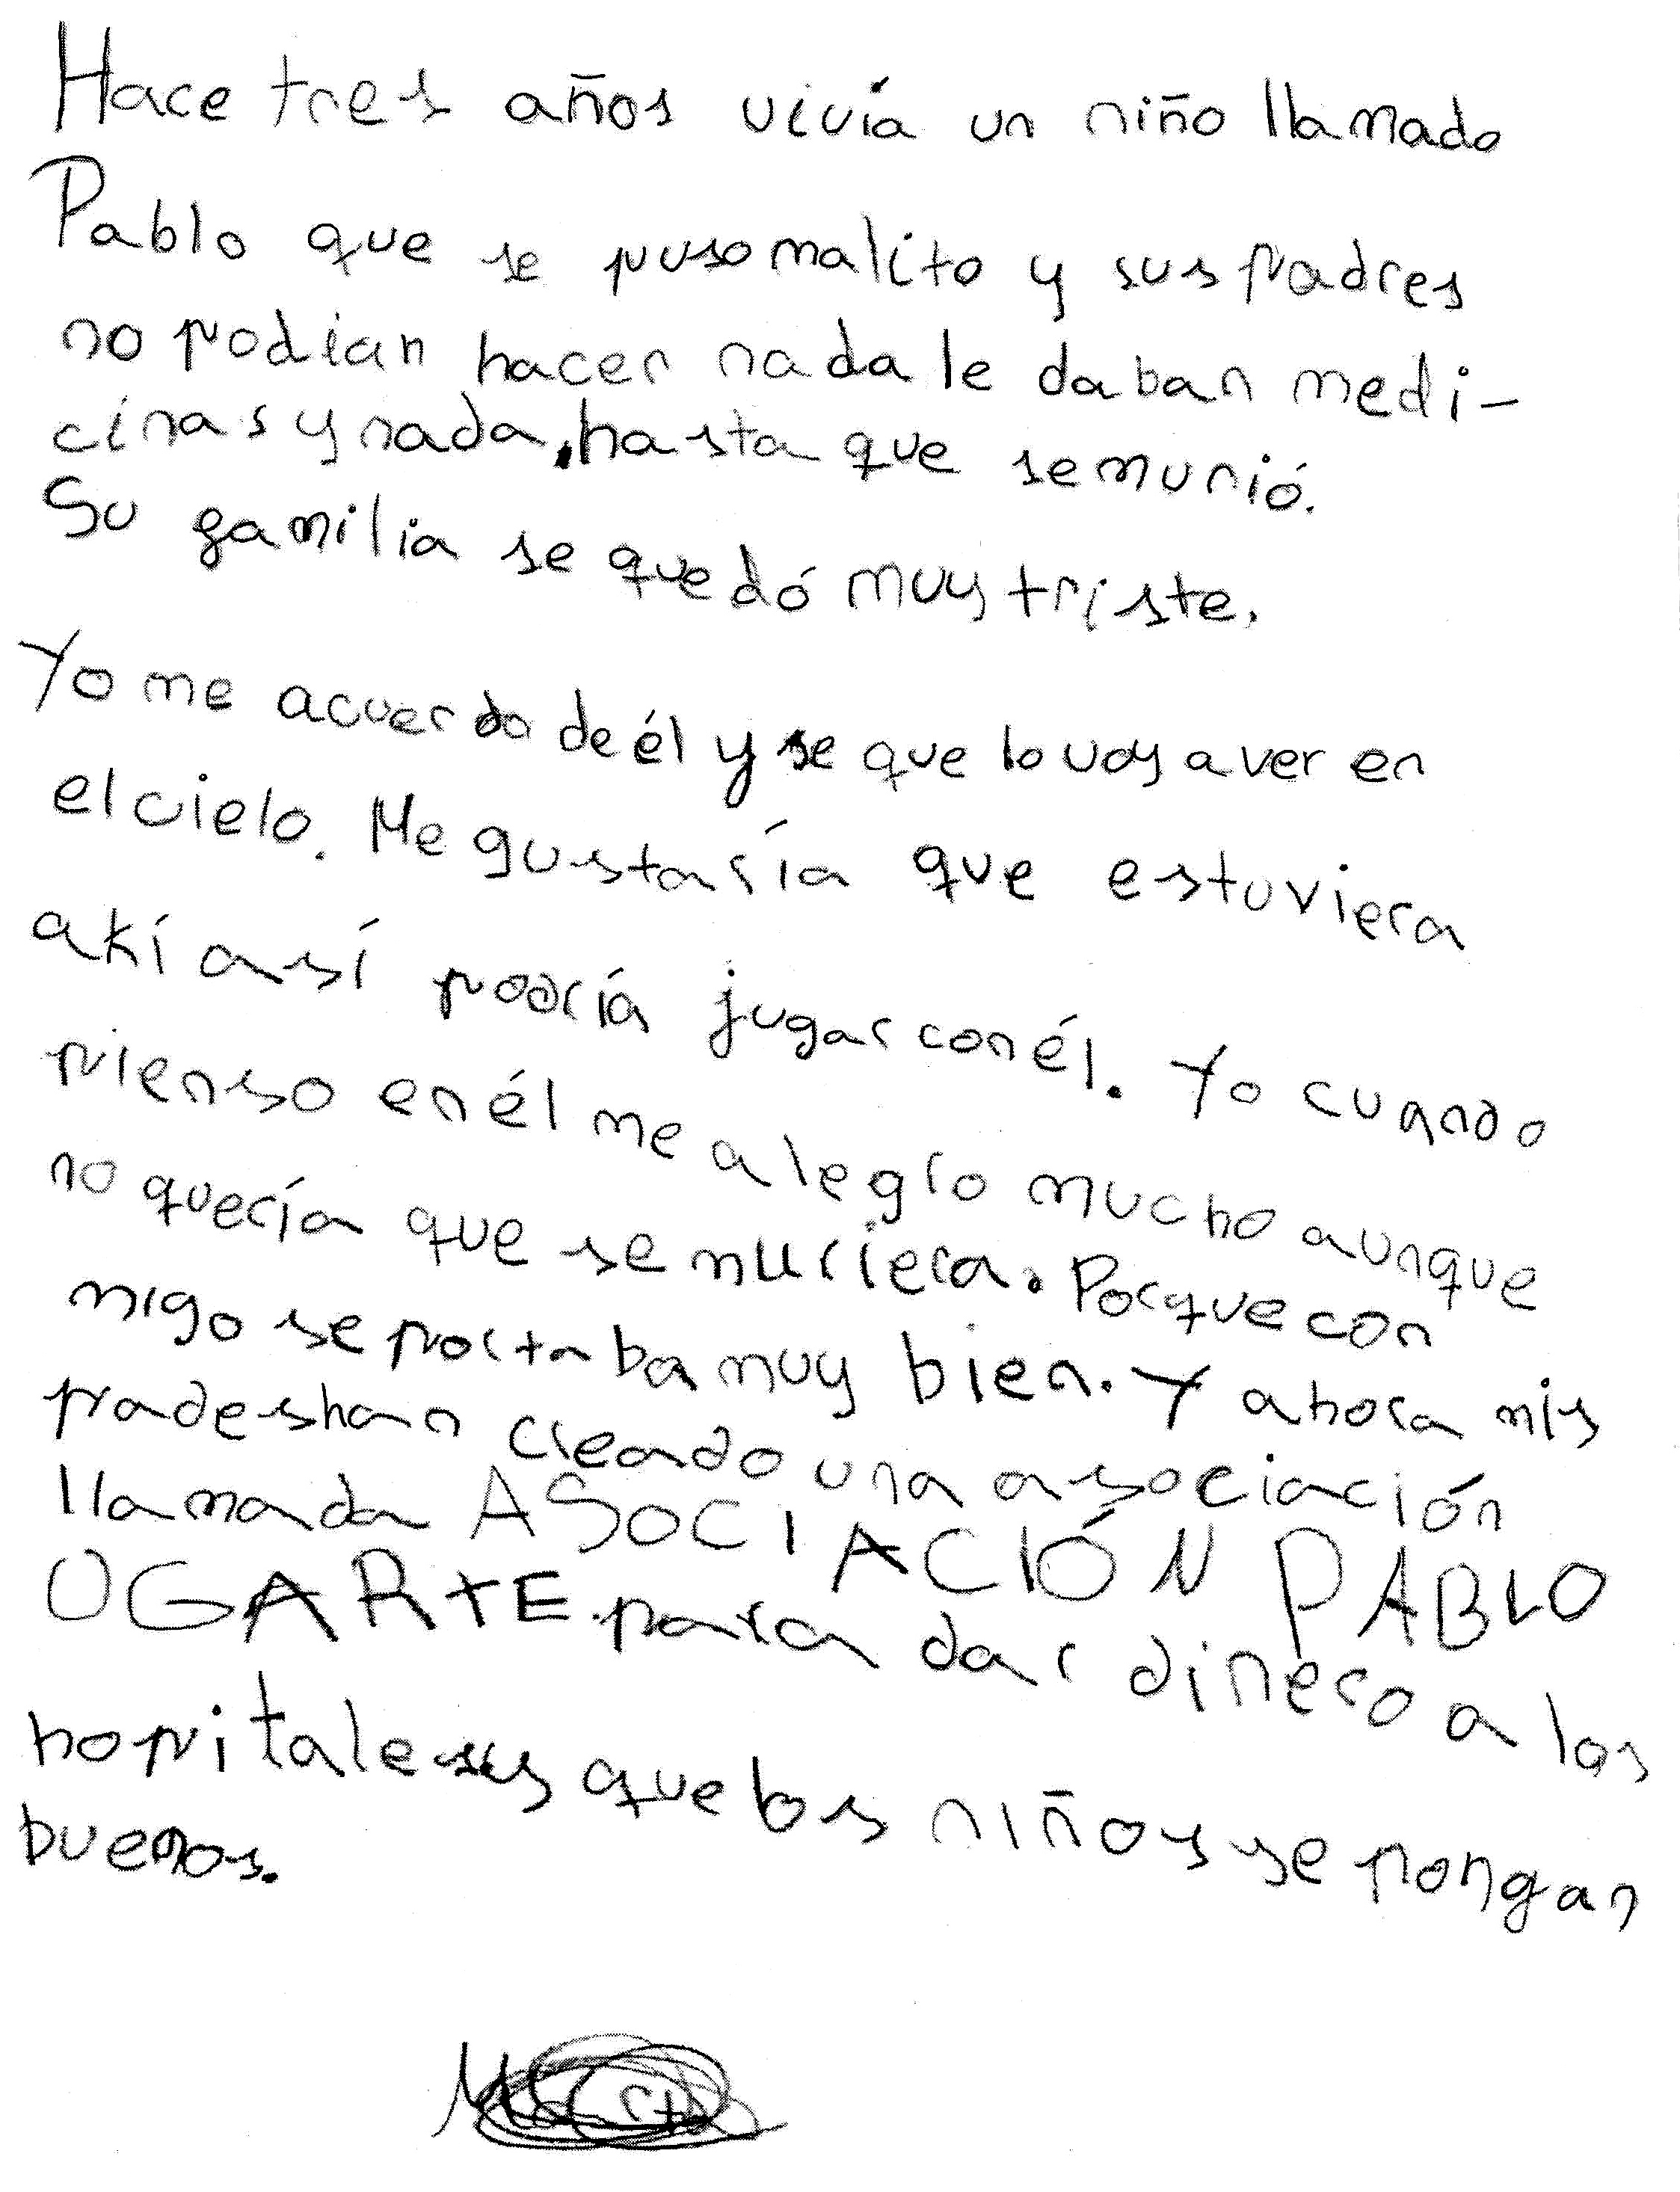 Hace tres años vivía un niño llamado
Pablo que se puso malito y sus padres
no podían hacer nada le daban medi-
cinas y nada, hasta que se murió.
Su familia se quedó muy triste.
Yo me acuerdo de él y se que lo voy a ver en
el cielo. Me gustaría que estuviera
akí así podría jugar con él. Yo cuando
pienso en él me alegro mucho aunque
no quería que se muriera. Porque con
migo se portaba muy bien. Y ahora mis
padres han creado una asociación
llamada ASOCIACIÓN PABLO
UGARTE para dar dinero a los
hopitales y que los niños se pongan
buenos.
Marta